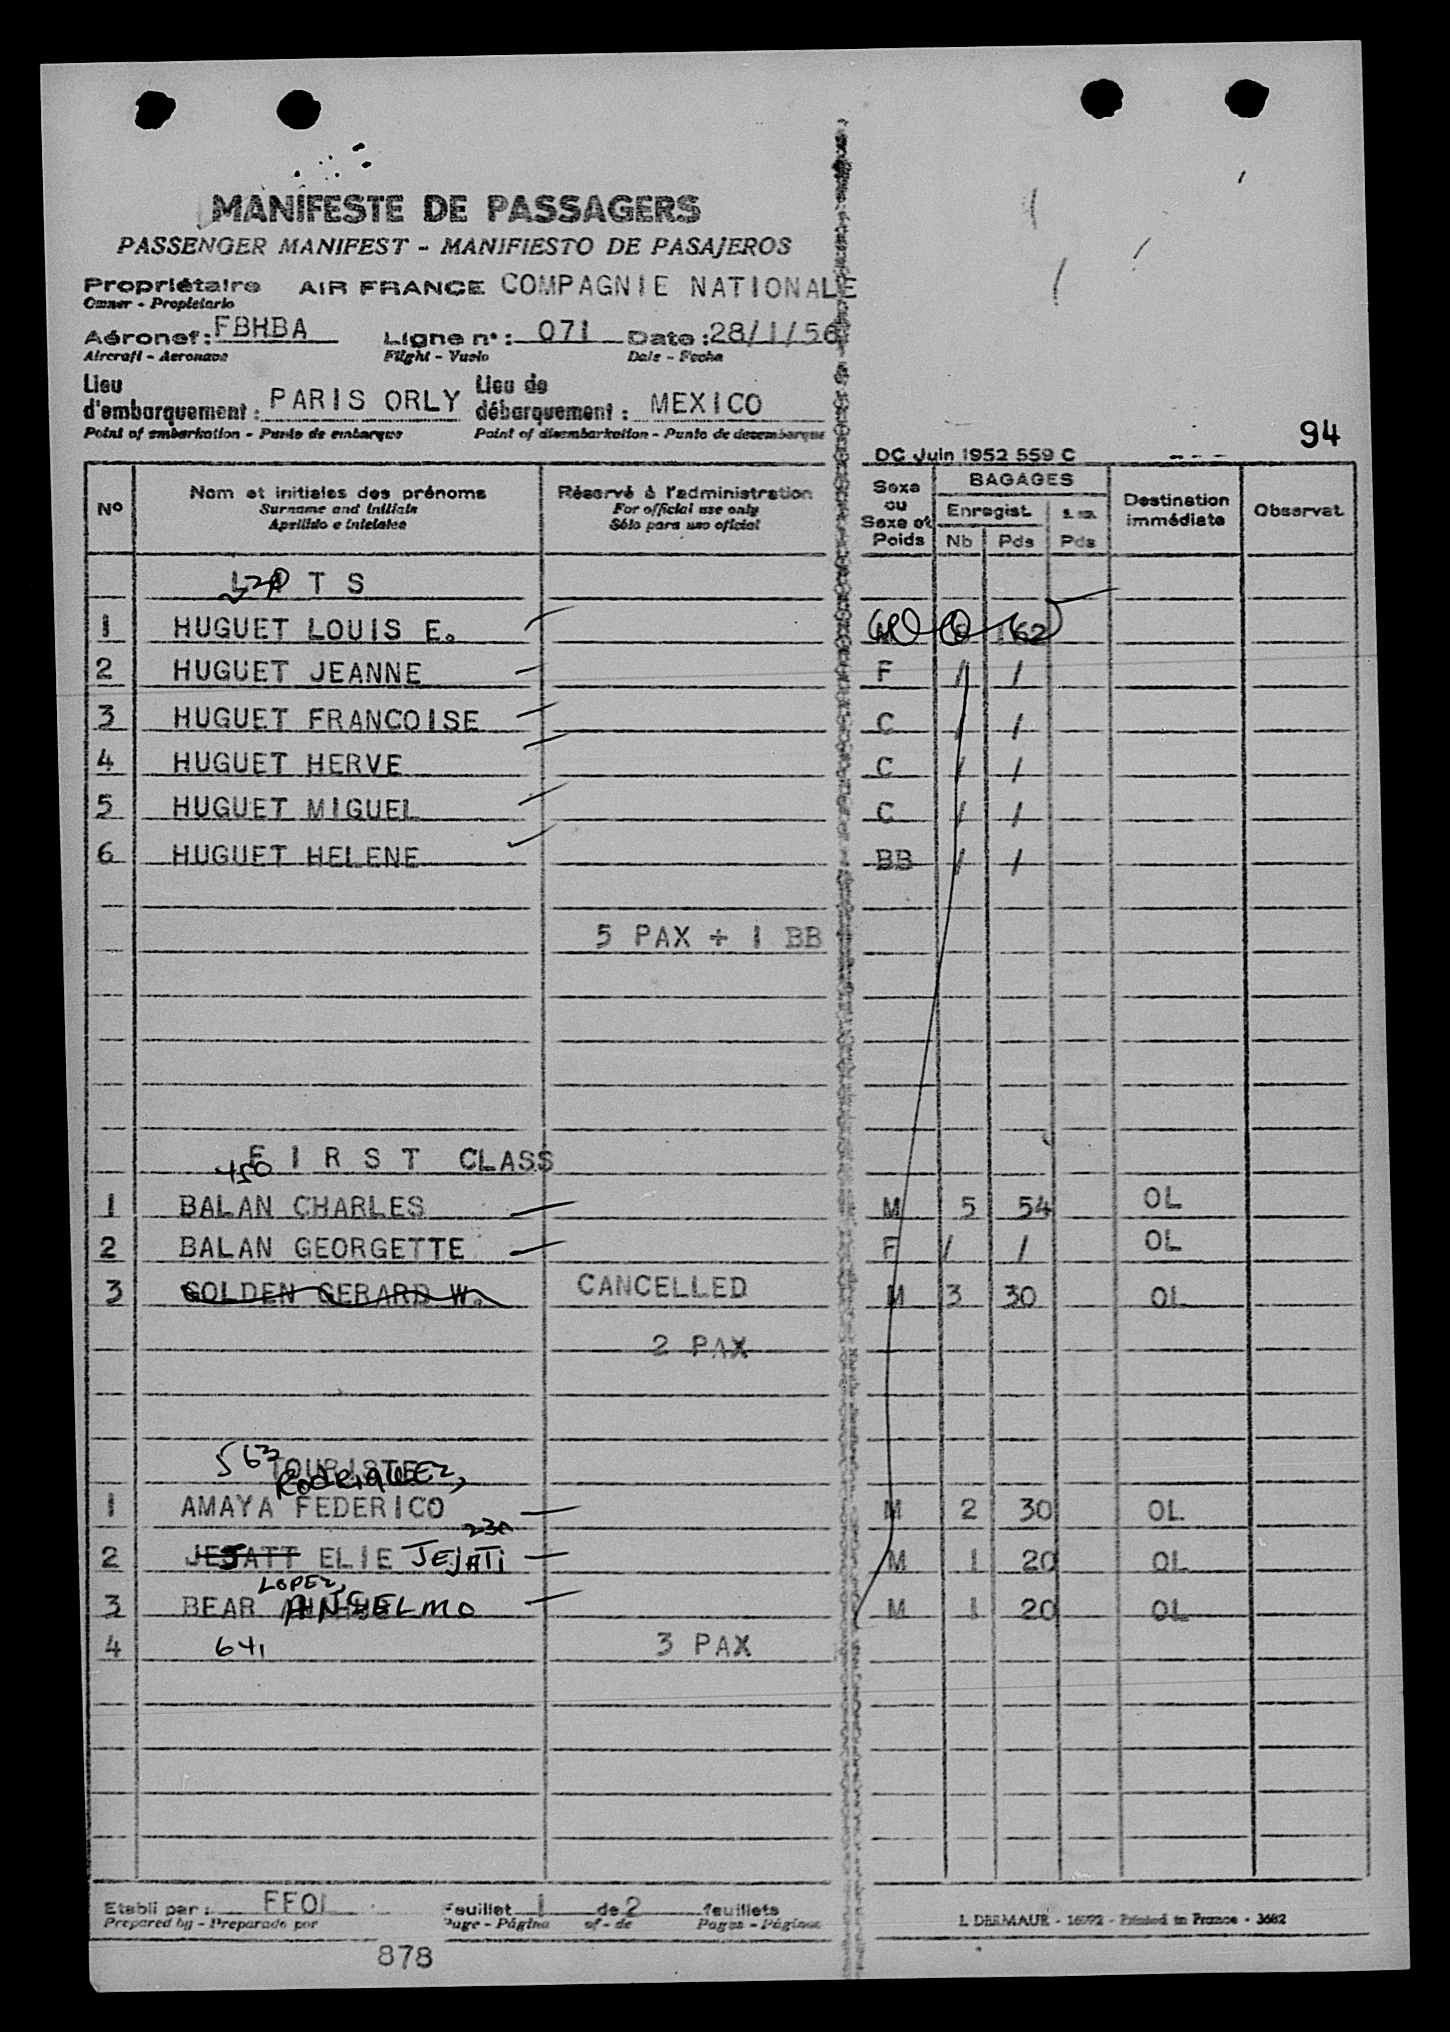 MANIFESTE DE PASSAGERS
PASSENGER MANIFEST - MANIFIESTO DE PASAJEROS
Propriétaire AIR FRANCE COMPAGNIE NATIONALE
Owner - Propietario
Aéronef: FBHBA Ligne n°: 071 Date: 28/1/56
Aircraft - Aeronave Flight - Vuelo Date - Fecha
Lieu d'embarquement: PARIS ORLY Lieu de débarquement: MEXICO
Point of embarkation - Punto de embarque Point of disembarkation - Punto de desembarque
94
DC Juin 1952 559 C
N° Nom et initiales des prénoms Réservé à l'administration Sexe ou Sexe et Poids BAGAGES Destination immédiate Observat.
Surname and initials For official use only Enregist.
Apellido e iniciales Sólo para uso oficial Nb Pds Pds
T S
1 HUGUET LOUIS E. 162
2 HUGUET JEANNE F / /
3 HUGUET FRANCOISE C / /
4 HUGUET HERVE C / /
5 HUGUET MIGUEL C / /
6 HUGUET HELENE BB / /
5 PAX + 1 BB
F I R S T CLASS
450
1 BALAN CHARLES M 5 54 OL
2 BALAN GEORGETTE F / / OL
3 GOLDEN GERARD W. CANCELLED M 3 30 OL
2 PAX
563 TOURISTE
RODRIGUEZ,
1 AMAYA FEDERICO M 2 30 OL
230
2 JEJATT ELIE JEJATI M 1 20 OL
LOPEZ,
3 BEAR ANSELMO M 1 20 OL
4 641 3 PAX
Etabli par: FFOL Feuillet 1 de 2 feuillets
Prepared by - Preparado por Page - Página of - de Pages - Páginas
I. DERMAUR - 16092 - Printed in France - 3682
878